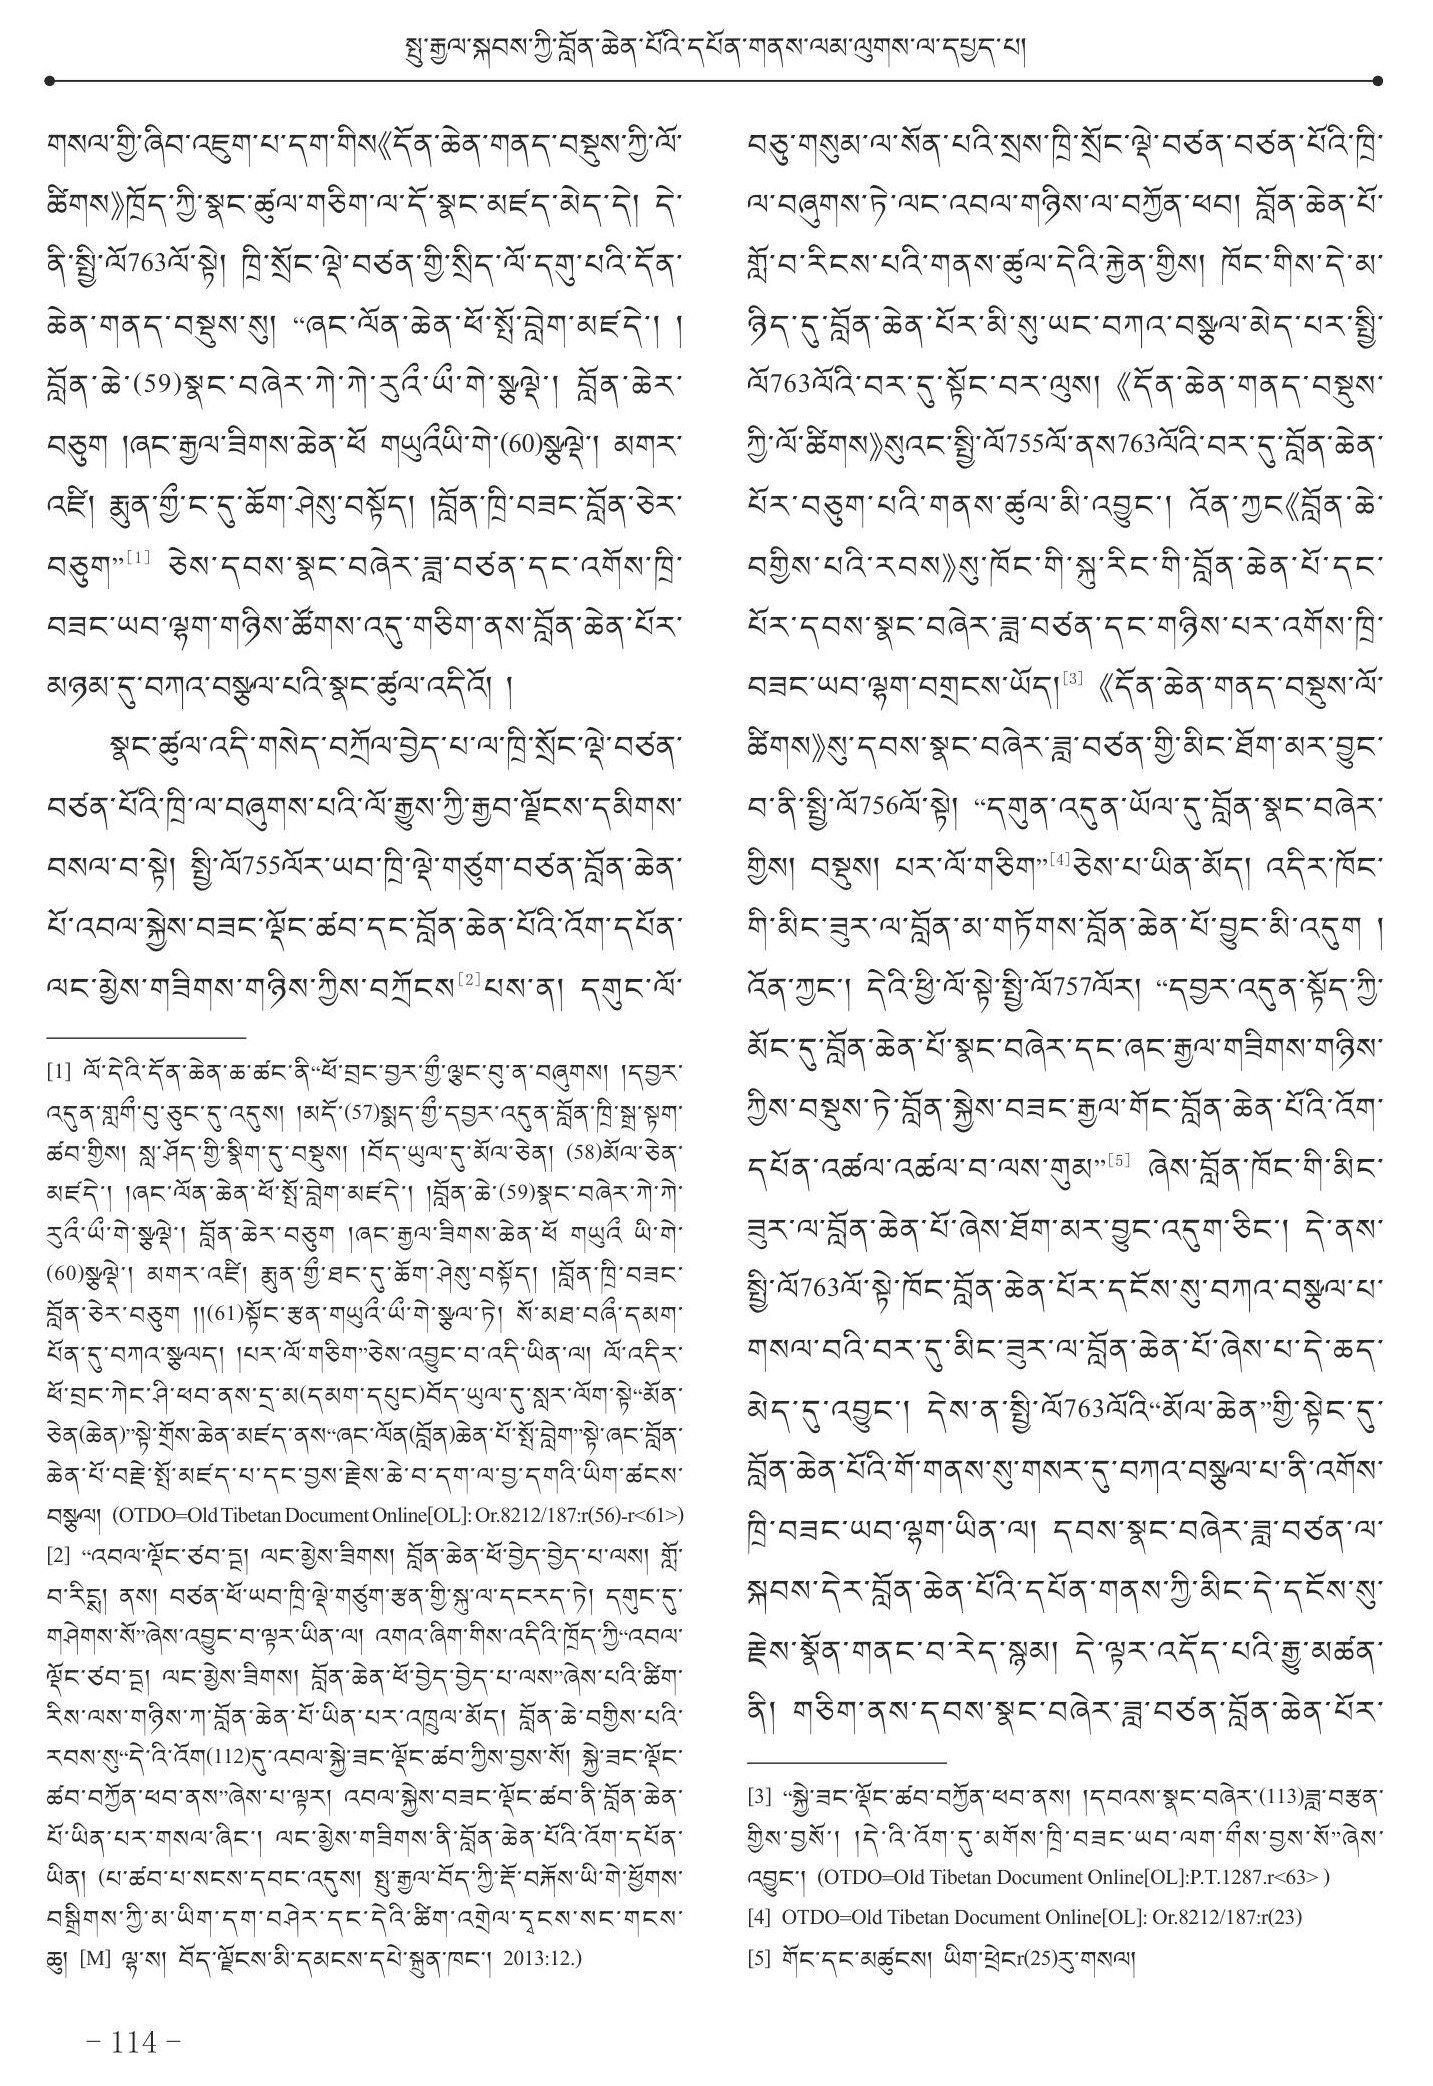 སྤུ་རྒྱལ་སྐབས་ཀྱི་བློན་ཆེན་པོའི་དཔོན་གནས་ལམ་ལུགས་ལ་དཔྱད་པ།
གསལ་གྱི་ཞིབ་འཇུག་པ་དག་གིས《དོན་ཆེན་གནད་བསྡུས་ཀྱི་ལོ་
ཚིགས》ཁྲོད་ཀྱི་སྣང་ཚུལ་གཅིག་ལ་དོ་སྣང་མཛད་མེད་དེ། དེ་
ནི་སྤྱི་ལོ763ལོ་སྟེ། ཁྲི་སྲོང་ལྡེ་བཙན་གྱི་སྲིད་ལོ་དགུ་པའི་དོན་
ཆེན་གནད་བསྡུས་སུ། “ཞང་ལོན་ཆེན་ཕོ་སྤོ་བླེག་མཛད་དེ་། །
བློན་ཆེ་(59)སྣང་བཞེར་ཀེ་ཀེ་རུའྀ་ཡྀ་གེ་སྩལྡེ་། བློན་ཆེར་
བཅུག །ཞང་རྒྱལ་ཟིགས་ཆེན་ཕོ གཡུའྀཡི་གེ་(60)སྩལྡེ་། མགར་
འཛི། རྨུན་གྱྀ་ང་དུ་ཆོག་ཤེསུ་བསྟོད། །བློན་ཁྲི་བཟང་བློན་ཅེར་
བཅུག”[1] ཅེས་དབས་སྣང་བཞེར་ཟླ་བཙན་དང་འགོས་ཁྲི་
བཟང་ཡབ་ལྷག་གཉིས་ཚོགས་འདུ་གཅིག་ནས་བློན་ཆེན་པོར་
མཉམ་དུ་བཀའ་བསྩལ་པའི་སྣང་ཚུལ་འདིའོ། །
སྣང་ཚུལ་འདི་གསེད་བཀྲོལ་བྱེད་པ་ལ་ཁྲི་སྲོང་ལྡེ་བཙན་
བཙན་པོའི་ཁྲི་ལ་བཞུགས་པའི་ལོ་རྒྱུས་ཀྱི་རྒྱབ་ལྗོངས་དམིགས་
བསལ་བ་སྟེ། སྤྱི་ལོ755ལོར་ཡབ་ཁྲི་ལྡེ་གཙུག་བཙན་བློན་ཆེན་
པོ་འབལ་སྐྱེས་བཟང་ལྡོང་ཚབ་དང་བློན་ཆེན་པོའི་འོག་དཔོན་
ལང་མྱེས་གཟིགས་གཉིས་ཀྱིས་བཀྲོངས[2]པས་ན། དགུང་ལོ་
[1] ལོ་དེའི་དོན་ཆེན་ཆ་ཚང་ནི“ཕོ་བྲང་བྱར་གྱྀ་ལྕང་བུ་ན་བཞུགས། །དབྱར་
འདུན་གླགྀ་བུ་ཅུང་དུ་འདུས། །མདོ་(57)སྨད་གྱྀ་དབྱར་འདུན་བློན་ཁྲི་སྒྲ་སྟག་
ཚབ་གྱིས། སླ་ཤོད་གྱི་སྣིག་དུ་བསྡུས། །བོད་ཡུལ་དུ་མོལ་ཅེན། (58)མོལ་ཅེན་
མཛད་དེ་། །ཞང་ལོན་ཆེན་ཕོ་སྤོ་བླེག་མཛད་དེ་། །བློན་ཆེ་(59)སྣང་བཞེར་ཀེ་ཀེ་
རུའྀ་ཡྀ་གེ་སྩལྡེ་། བློན་ཆེར་བཅུག །ཞང་རྒྱལ་ཟིགས་ཆེན་ཕོ གཡུའྀ ཡི་གེ་
(60)སྩལྡེ་། མགར་འཛི། རྨུན་གྱྀ་ཐང་དུ་ཆོག་ཤེསུ་བསྟོད། །བློན་ཁྲི་བཟང་
བློན་ཅེར་བཅུག །།(61)སྟོང་རྩན་གཡུའྀ་ཡྀ་གེ་སྩལ་ཏེ། སོ་མཐ་བཞྀ་དམག་
པོན་དུ་བཀའ་སྩལད། །པར་ལོ་གཅིག”ཅེས་འབྱུང་བ་འདི་ཡིན་ལ། ལོ་འདིར་
ཕོ་བྲང་ཀེང་ཤི་ཕབ་ནས་དྲ་མ(དམག་དཔུང)བོད་ཡུལ་དུ་སླར་ལོག་སྟེ“མོན་
ཅེན(ཆེན)”སྟེ་གྲོས་ཆེན་མཛད་ནས“ཞང་ལོན(བློན)ཆེན་པོ་སྤོ་བླེག”སྟེ་ཞང་བློན་
ཆེན་པོ་བརྗེ་སྤོ་མཛད་པ་དང་བྱས་རྗེས་ཆེ་བ་དག་ལ་བྱ་དགའི་ཡིག་ཚངས་
བསྩལ། (OTDO=Old Tibetan Document Online[OL]: Or.8212/187:r(56)-r<61>)
[2] “འབལ་ལྡོང་ཙབ་དྲ། ལང་མྱེས་ཟིགས། བློན་ཆེན་ཕོ་བྱེད་བྱེད་པ་ལས། གློ་
བ་རིངྶ། ནས། བཙན་ཕོ་ཡབ་ཁྲི་ལྡེ་གཙུག་རྩན་གྱི་སྐུ་ལ་དངརད་ཏེ། དགུང་དུ་
གཤེགས་སོ”ཞེས་འབྱུང་བ་ལྟར་ཡིན་ལ། འགའ་ཞིག་གིས་འདིའི་ཁྲོད་ཀྱི“འབལ་
ལྡོང་ཙབ་དྲ། ལང་མྱེས་ཟིགས། བློན་ཆེན་ཕོ་བྱེད་བྱེད་པ་ལས”ཞེས་པའི་ཚིག་
རིས་ལས་གཉིས་ཀ་བློན་ཆེན་པོ་ཡིན་པར་འཁྲུལ་མོད། བློན་ཆེ་བགྱིས་པའི་
རབས་སུ“དེ་འི་འོག(112)དུ་འབལ་སྐྱེ་ཟང་ལྡོང་ཚབ་ཀྱིས་བྱས་སོ། སྐྱེ་ཟང་ལྡོང་
ཚབ་བཀྱོན་ཕབ་ནས”ཞེས་པ་ལྟར། འབལ་སྐྱེས་བཟང་ལྡོང་ཚབ་ནི་བློན་ཆེན་
པོ་ཡིན་པར་གསལ་ཞིང་། ལང་མྱེས་གཟིགས་ནི་བློན་ཆེན་པོའི་འོག་དཔོན་
ཡིན། (པ་ཚབ་པ་སངས་དབང་འདུས། སྤུ་རྒྱལ་བོད་ཀྱི་རྡོ་བརྐོས་ཡི་གེ་ཕྱོགས་
བསྒྲིགས་ཀྱི་མ་ཡིག་དག་བཤེར་དང་དེའི་ཚིག་འགྲེལ་དྭངས་སང་གངས་
ཆུ། [M] ལྷ་ས། བོད་ལྗོངས་མི་དམངས་དཔེ་སྐྲུན་ཁང་། 2013:12.)
བཅུ་གསུམ་ལ་སོན་པའི་སྲས་ཁྲི་སྲོང་ལྡེ་བཙན་བཙན་པོའི་ཁྲི་
ལ་བཞུགས་ཏེ་ལང་འབལ་གཉིས་ལ་བཀྱོན་ཕབ། བློན་ཆེན་པོ་
གློ་བ་རིངས་པའི་གནས་ཚུལ་དེའི་རྐྱེན་གྱིས། ཁོང་གིས་དེ་མ་
ཉིད་དུ་བློན་ཆེན་པོར་མི་སུ་ཡང་བཀའ་བསྩལ་མེད་པར་སྤྱི་
ལོ763ལོའི་བར་དུ་སྟོང་བར་ལུས། 《དོན་ཆེན་གནད་བསྡུས་
ཀྱི་ལོ་ཚིགས》སུའང་སྤྱི་ལོ755ལོ་ནས763ལོའི་བར་དུ་བློན་ཆེན་
པོར་བཅུག་པའི་གནས་ཚུལ་མི་འབྱུང་། འོན་ཀྱང《བློན་ཆེ་
བགྱིས་པའི་རབས》སུ་ཁོང་གི་སྐུ་རིང་གི་བློན་ཆེན་པོ་དང་
པོར་དབས་སྣང་བཞེར་ཟླ་བཙན་དང་གཉིས་པར་འགོས་ཁྲི་
བཟང་ཡབ་ལྷག་བགྲངས་ཡོད།[3] 《དོན་ཆེན་གནད་བསྡུས་ལོ་
ཚིགས》སུ་དབས་སྣང་བཞེར་ཟླ་བཙན་གྱི་མིང་ཐོག་མར་བྱུང་
བ་ནི་སྤྱི་ལོ756ལོ་སྟེ། “དགུན་འདུན་ཡོལ་དུ་བློན་སྣང་བཞེར་
གྱིས། བསྡུས། པར་ལོ་གཅིག”[4]ཅེས་པ་ཡིན་མོད། འདིར་ཁོང་
གི་མིང་ཟུར་ལ་བློན་མ་གཏོགས་བློན་ཆེན་པོ་བྱུང་མི་འདུག །
འོན་ཀྱང་། དེའི་ཕྱི་ལོ་སྟེ་སྤྱི་ལོ757ལོར། “དབྱར་འདུན་སྟོད་ཀྱི་
མོང་དུ་བློན་ཆེན་པོ་སྣང་བཞེར་དང་ཞང་རྒྱལ་གཟིགས་གཉིས་
ཀྱིས་བསྡུས་ཏེ་བློན་སྐྱེས་བཟང་རྒྱལ་གོང་བློན་ཆེན་པོའི་འོག་
དཔོན་འཚལ་འཚལ་བ་ལས་གུམ”[5] ཞེས་བློན་ཁོང་གི་མིང་
ཟུར་ལ་བློན་ཆེན་པོ་ཞེས་ཐོག་མར་བྱུང་འདུག་ཅིང་། དེ་ནས་
སྤྱི་ལོ763ལོ་སྟེ་ཁོང་བློན་ཆེན་པོར་དངོས་སུ་བཀའ་བསྩལ་པ་
གསལ་བའི་བར་དུ་མིང་ཟུར་ལ་བློན་ཆེན་པོ་ཞེས་པ་དེ་ཆད་
མེད་དུ་འབྱུང་། དེས་ན་སྤྱི་ལོ763ལོའི“མོལ་ཆེན”གྱི་སྟེང་དུ་
བློན་ཆེན་པོའི་གོ་གནས་སུ་གསར་དུ་བཀའ་བསྩལ་པ་ནི་འགོས་
ཁྲི་བཟང་ཡབ་ལྷག་ཡིན་ལ། དབས་སྣང་བཞེར་ཟླ་བཙན་ལ་
སྐབས་དེར་བློན་ཆེན་པོའི་དཔོན་གནས་ཀྱི་མིང་དེ་དངོས་སུ་
རྗེས་སྣོན་གནང་བ་རེད་སྙམ། དེ་ལྟར་འདོད་པའི་རྒྱུ་མཚན་
ནི། གཅིག་ནས་དབས་སྣང་བཞེར་ཟླ་བཙན་བློན་ཆེན་པོར་
[3] “སྐྱེ་ཟང་ལྡོང་ཚབ་བཀྱོན་ཕབ་ནས། །དབའས་སྣང་བཞེར་(113)ཟླ་བརྩན་
གྱིས་བྱསོ་། །དེ་འི་འོག་དུ་མགོས་ཁྲི་བཟང་ཡབ་ལག་གྀས་བྱས་སོ”ཞེས་
འབྱུང་། (OTDO=Old Tibetan Document Online[OL]:P.T.1287.r<63> )
[4] OTDO=Old Tibetan Document Online[OL]: Or.8212/187:r(23)
[5] གོང་དང་མཚུངས། ཡིག་ཕྲེངr(25)རུ་གསལ།
– 114 –